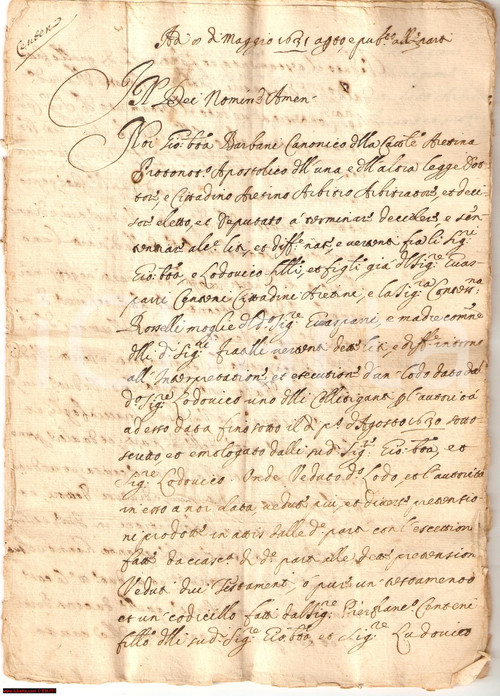 Centen
Adì 8 di Maggio 1631 agto e pubto alle parti
IN Dei Nomine Amen
Noi Gio: Bta Barbani Canonico dlla Cattle Aretina
Protonotro Apostolico dll una e dll altra legge Dot
tore, e Cittadino Aretino Arbitro Arbitratore, et deci
sore eletto, et Deputato à terminare decidere e sen
tentiare le liti, et diffze nate, e vertenti fra li Sigri
Gio: Bta, e Lodovico flli, et figli già dl Sigre Guas
parri Centeni Cittadini Aretini, e la Sigra Contessa
Rosselli moglie dl do Sigre Guasparri, e madre comne
dlli di Sigri fratelli vertenti dette liti, e diffze intorno
all Interpretatione, et esecutione d'un Lodo dato dal
do Sigre Lodovico uno dlli Collitiganti p l'autorità
adesso data fino sotto il dì po d'Agosto 1630 sotto
scritto et emologato dalli sudi Sigri Gio: Bta, et
Sigre Lodovico Unde Veduto do Lodo, et l'autorità
in esso a noi data, veduti più, et diverse pretentio
ni prodotte in attis dalle de parti con l'eccettioni
fatte da ciasca di de parti alle dette pretensioni
Veduti due Testamenti, ò pure un testamento
et un codicillo fatti dal Sigre Pierfranco Centeni
fratello dlli sudi Sigri Gio: Bta, et Sigre Lodovico
www.delcampe.com